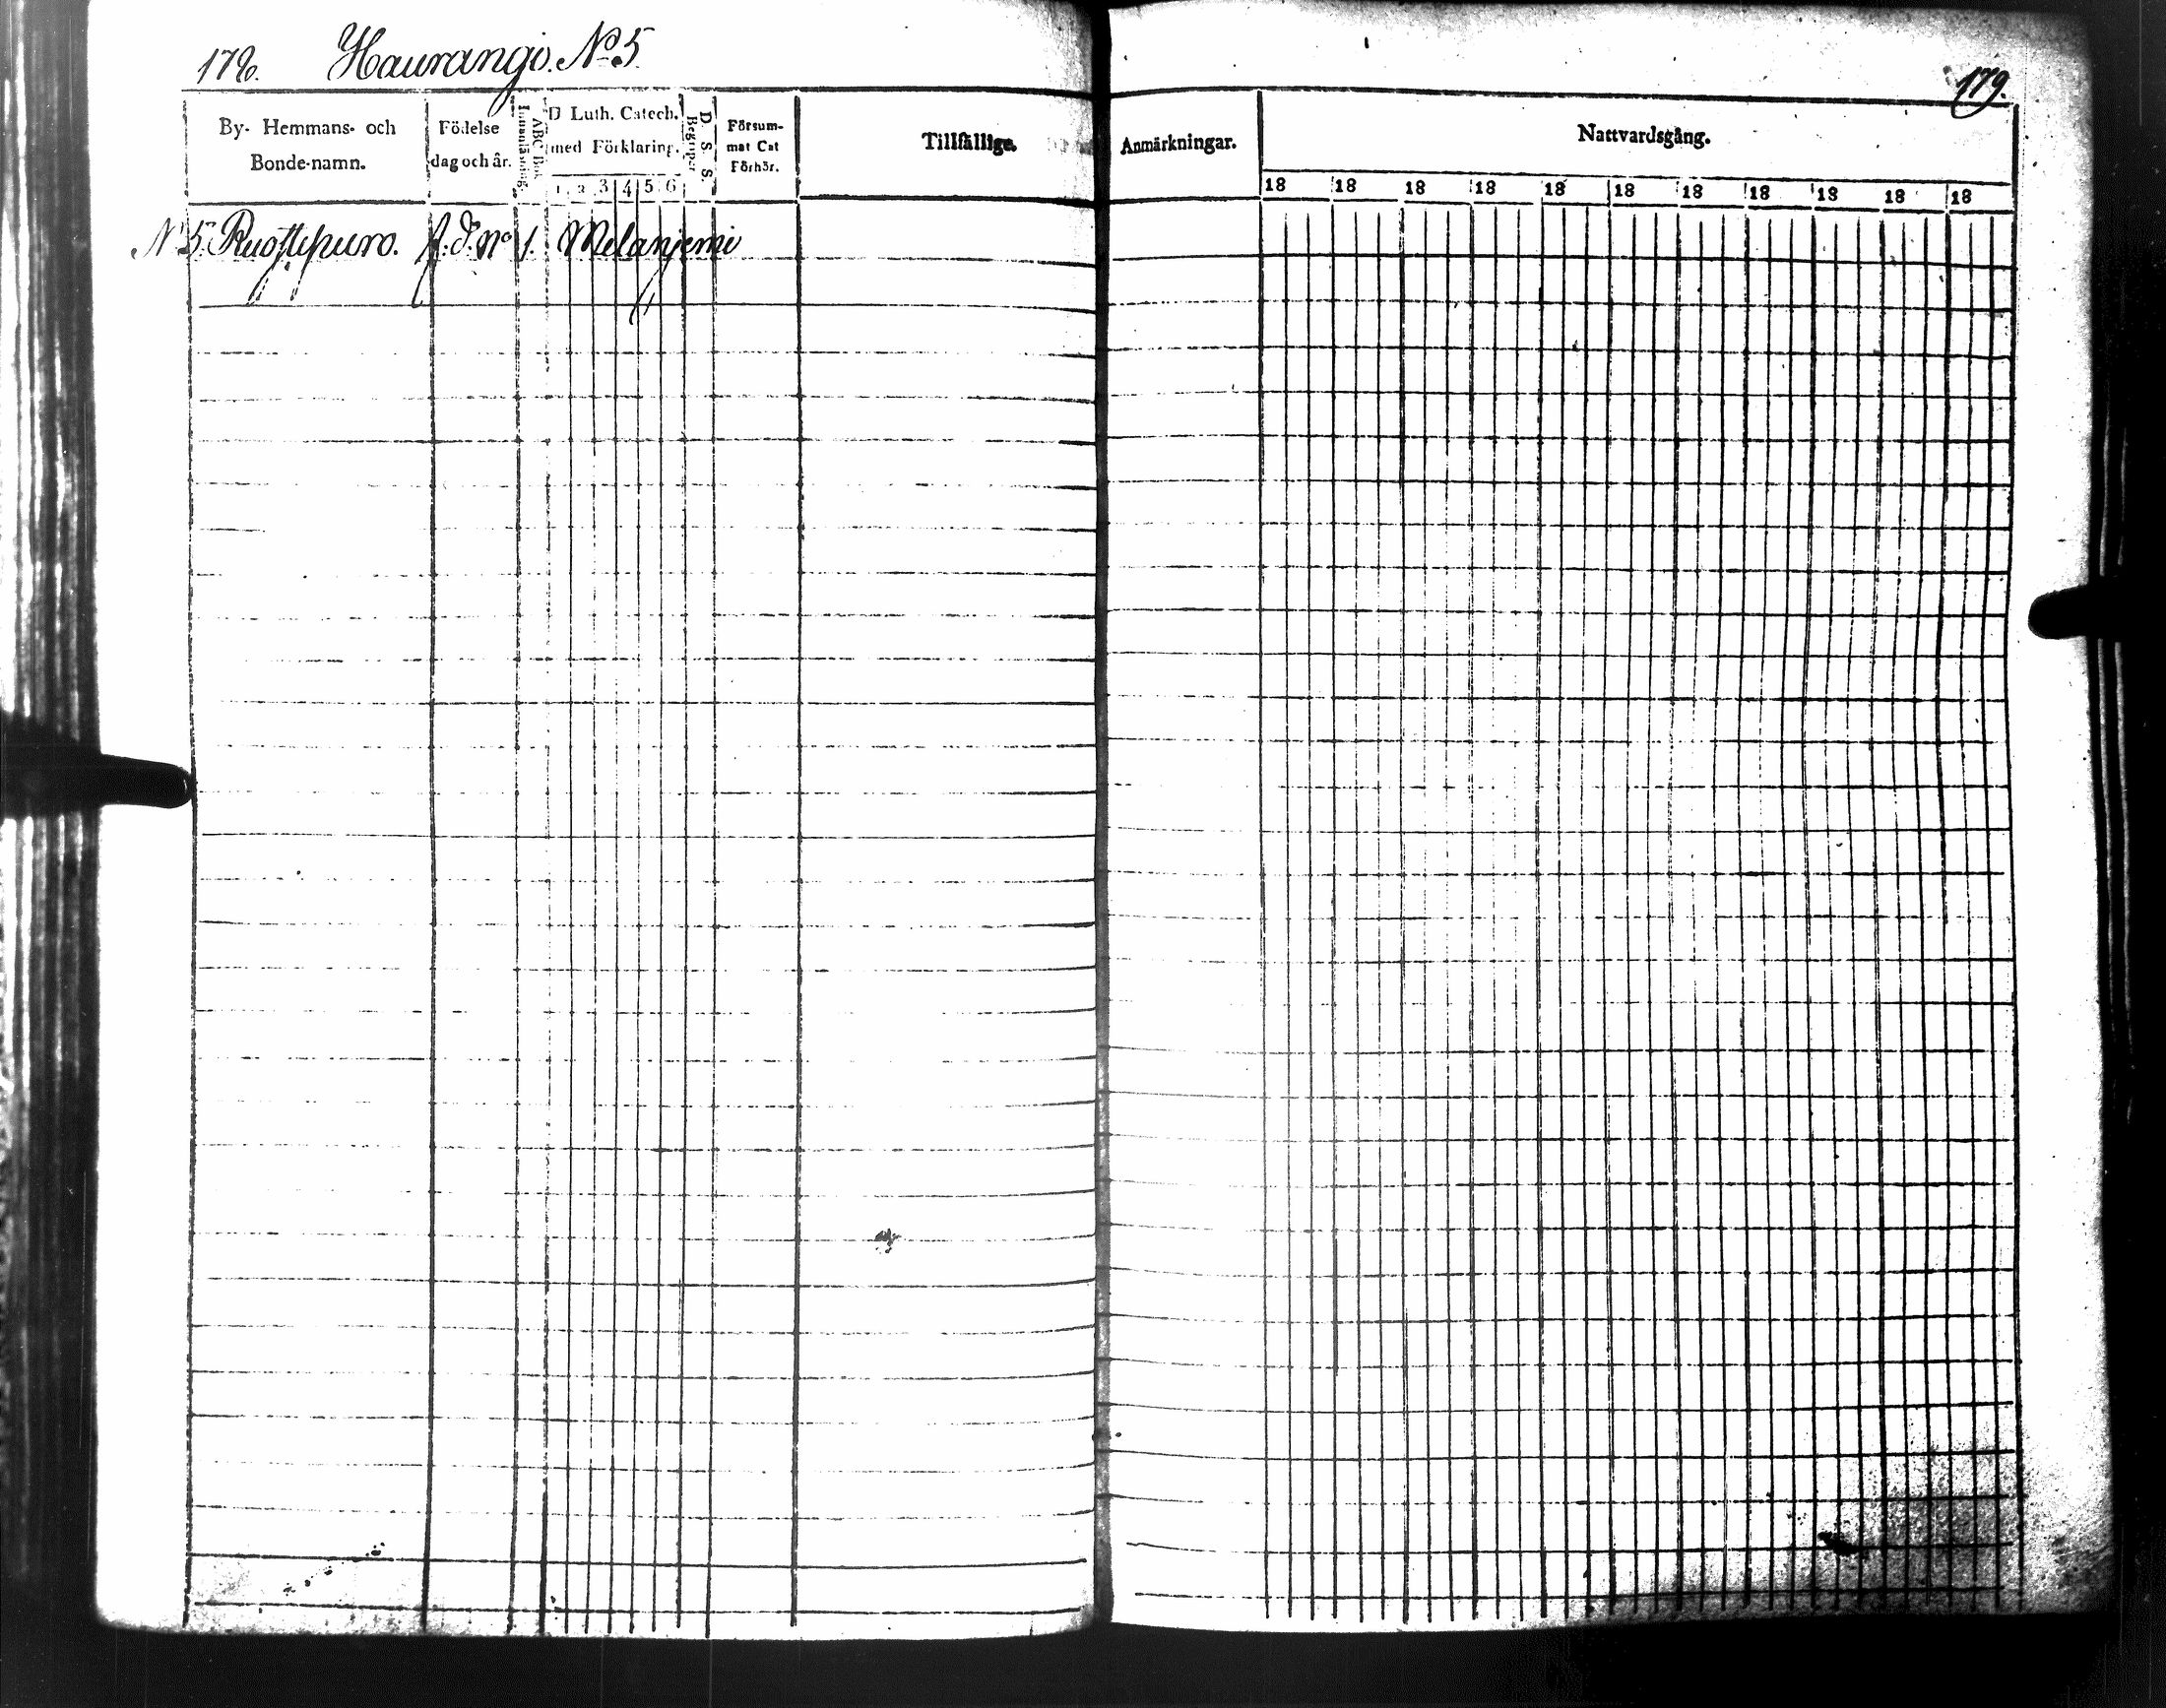 178. Haurangi. No 5.
179.
By- Hemmans- och Bonde-namn.
Födelse dag och år.
Innanläsning.
ABC Bok
D Luth. Catech. med Förklaring.
1 2 3 4 5 6
Begreper
D. S. S.
Försum- mat Cat Förhör.
Tillfällige
Anmärkningar.
Nattvardsgång.
18 18 18 18 18 18 18 18 18 18 18
No 5. Ruottipuro. f. d. No 1. Melanjemi